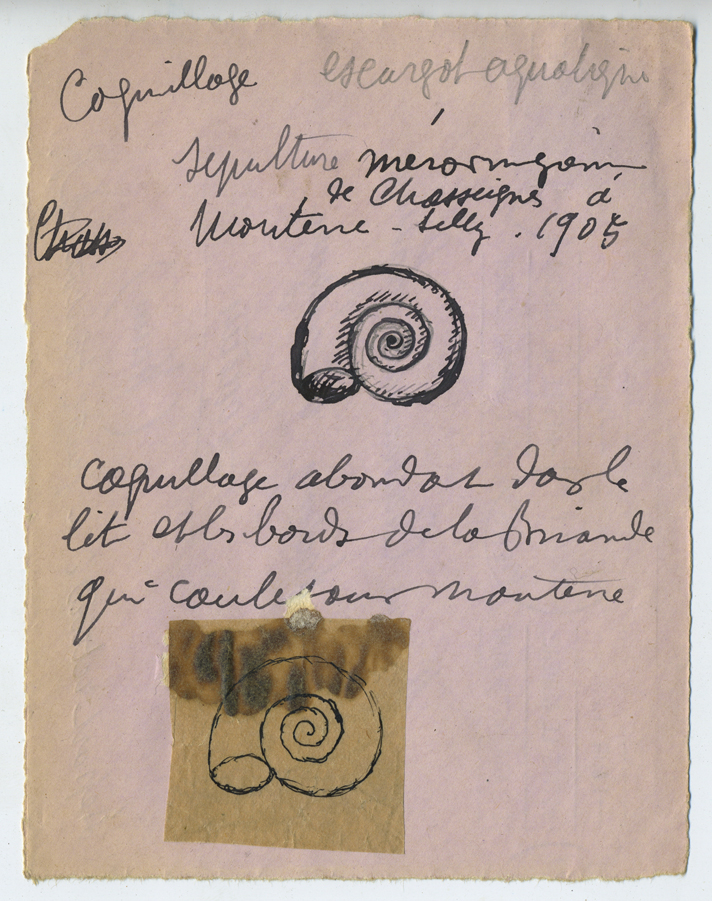 Coquillage escargot aquatique
Sépulture mérovingienne
de Chasseignes à
Monterre-Silly. 1905
coquillage abondant dans le
lit et les bords de la Briande
qui coule sous Monterre